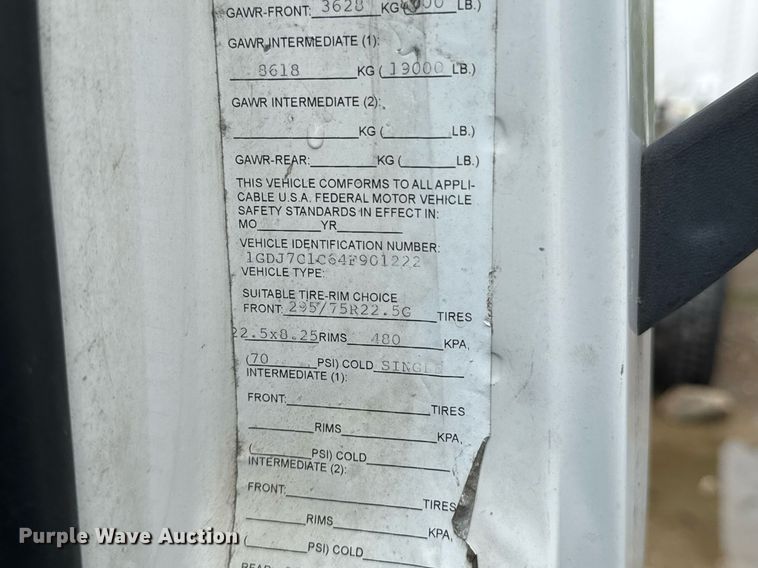 GAWR-FRONT: 3628 KG LB.)
GAWR INTERMEDIATE (1):
8618 KG (19000 LB.)
GAWR INTERMEDIATE (2):
KG ( LB.)
GAWR-REAR: KG ( LB.)
THIS VEHICLE COMFORMS TO ALL APPLI-
CABLE U.S.A. FEDERAL MOTOR VEHICLE
SAFETY STANDARDS IN EFFECT IN:
MO YR
VEHICLE IDENTIFICATION NUMBER:
1GDJ7C1C64F901222
VEHICLE TYPE:
SUITABLE TIRE-RIM CHOICE
FRONT: 295/75R22.5G TIRES
22.5x8.25 RIMS 480 KPA,
(70 PSI) COLD SINGLE
INTERMEDIATE (1):
FRONT: TIRES
RIMS KPA,
( PSI) COLD
INTERMEDIATE (2):
FRONT: TIRES
RIMS KPA,
( PSI) COLD
Purple Wave Auction